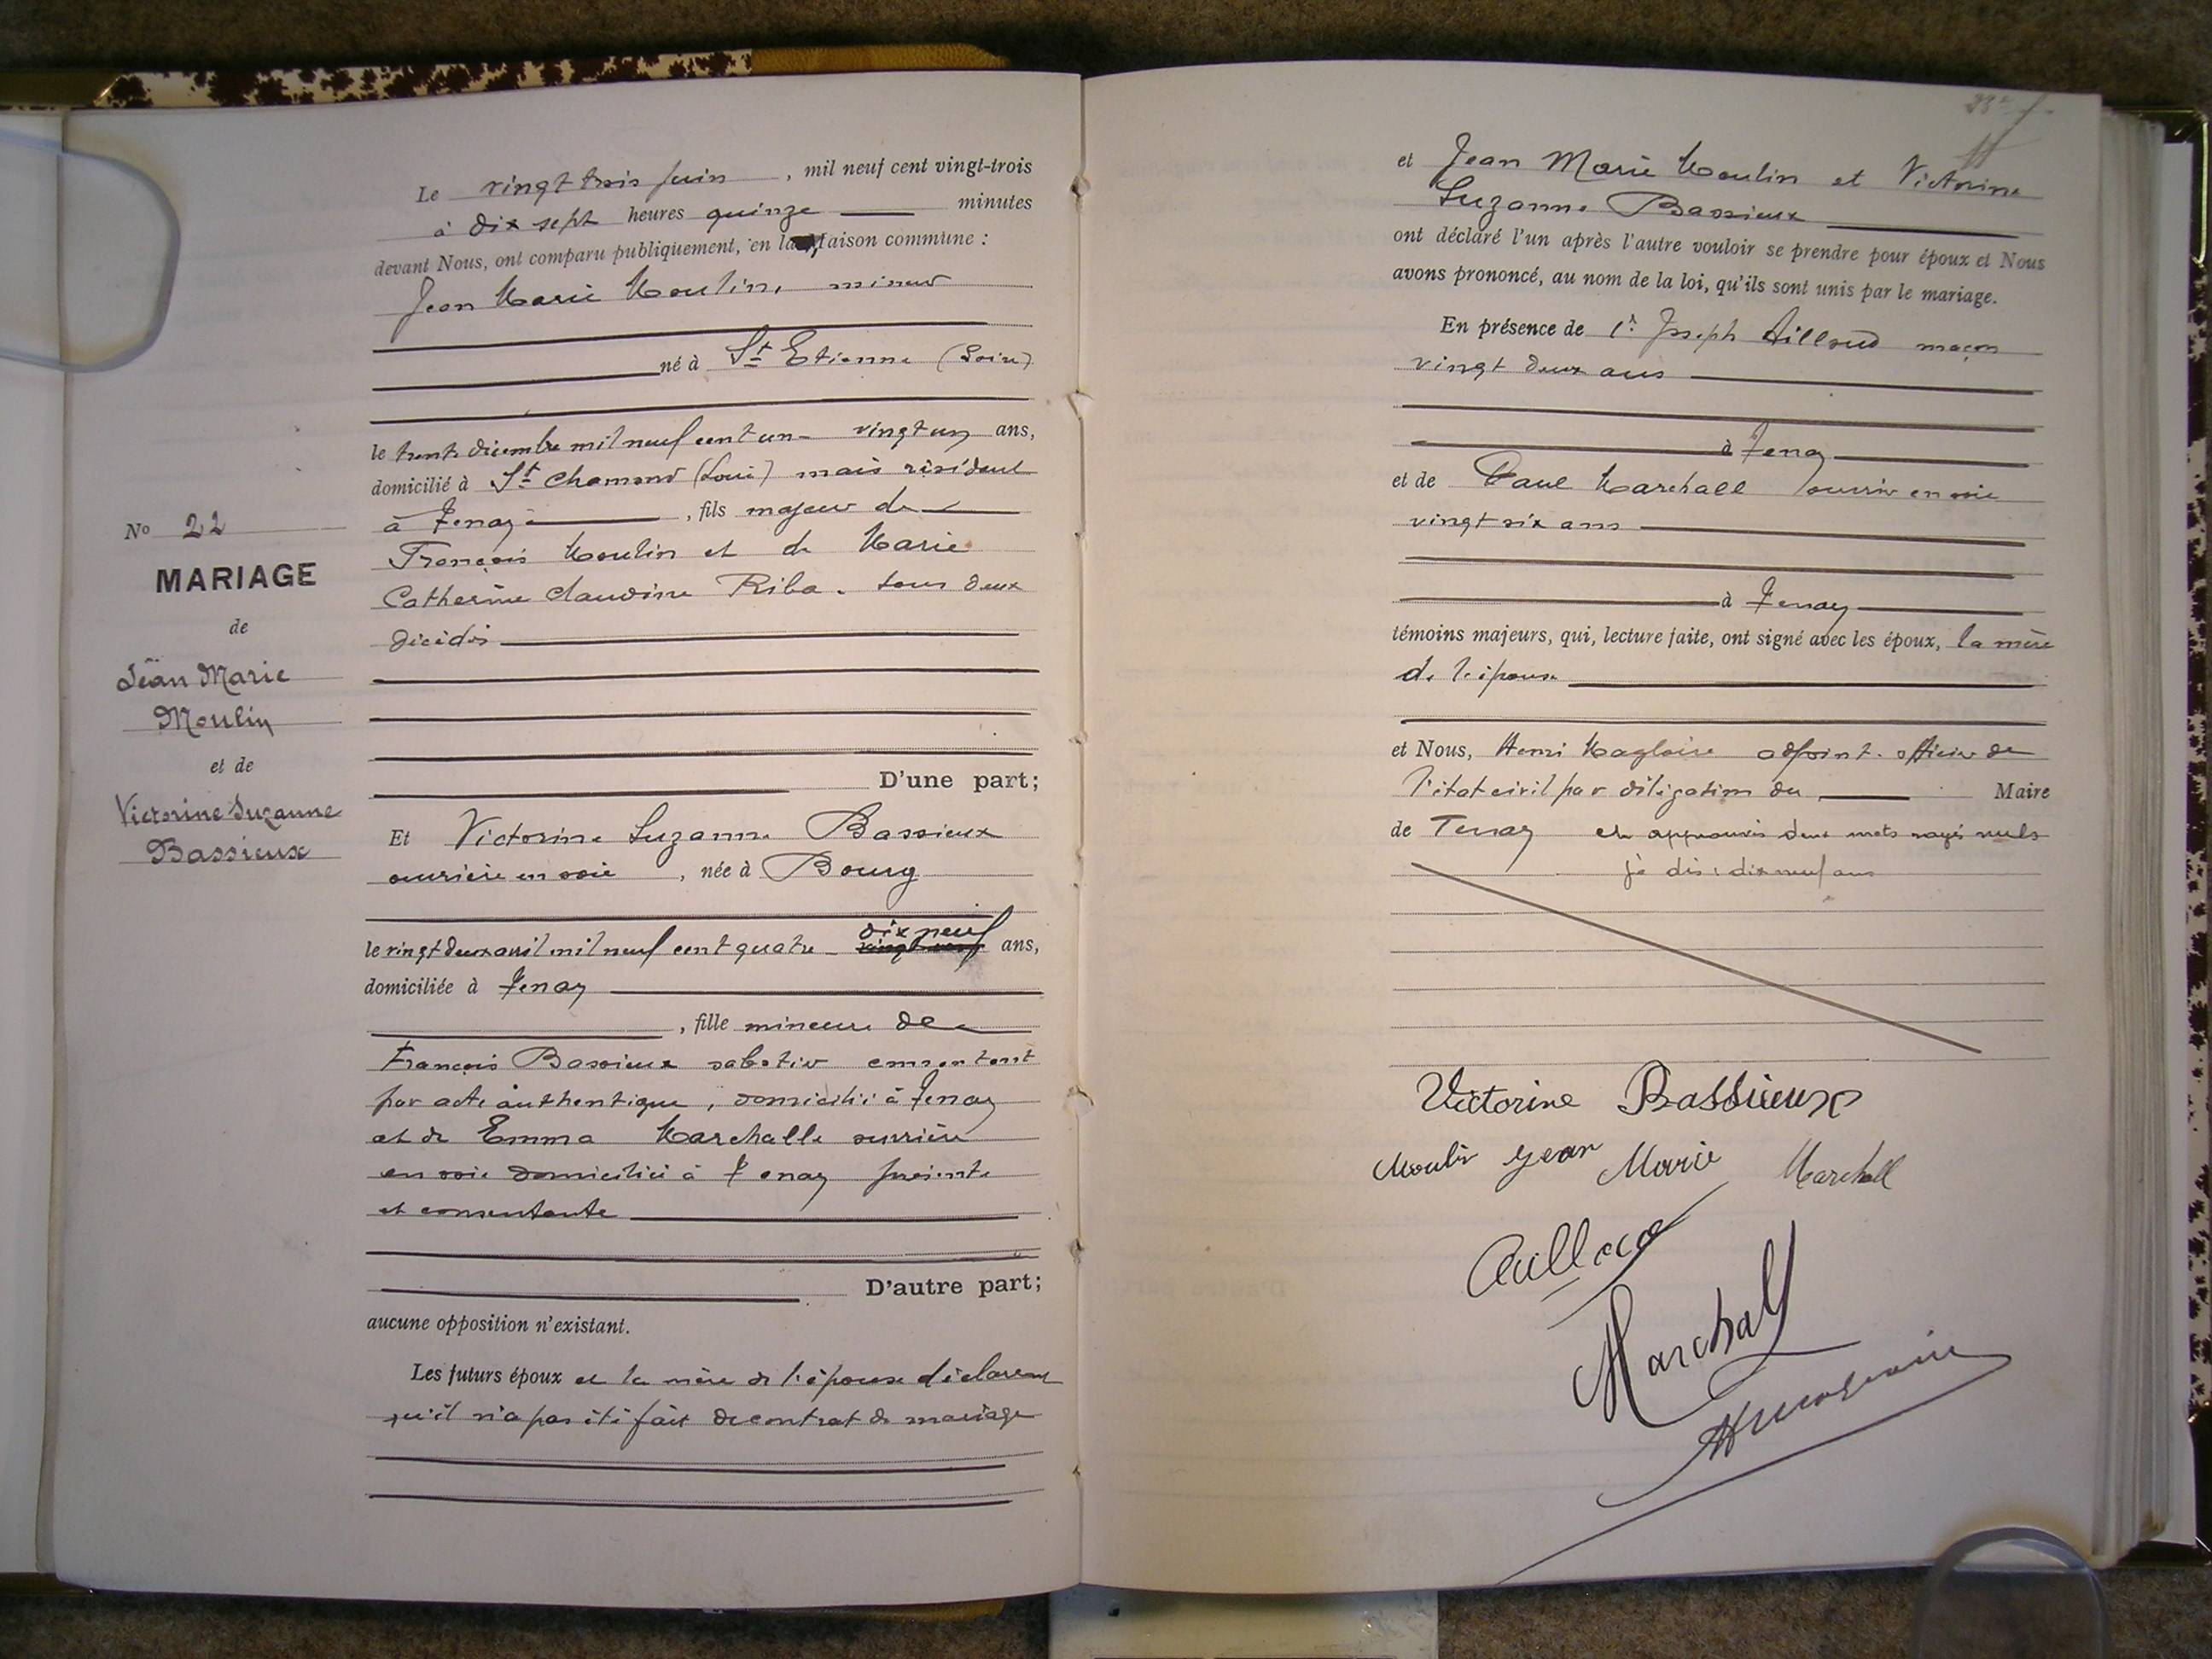 No 22
MARIAGE
de
Jean Marie
Moulin
et de
Victorine Suzanne
Bassieux
Le vingt trois juin, mil neuf cent vingt-trois
à dix sept heures quinze minutes
devant Nous, ont comparu publiquement, en la Maison commune :
Jean Marie Moulin, mineur
né à St Etienne (Loire)
le trente décembre mil neuf cent un - vingt un ans,
domicilié à St Chamond (Loire) mais résidant
à Tenay, fils majeur de
François Moulin et de Marie
Catherine Claudine Riba. tous deux
décédés
D'une part;
Et Victorine Suzanne Bassieux
ouvrière en soie, née à Bourg
le vingt deux avril mil neuf cent quatre - dix neuf ans,
domiciliée à Tenay
, fille mineure de
François Bassieux sabotier consentant
par acte authentique, domicilié à Tenay
et de Emma Marchall ouvrière
en soie domiciliée à Tenay présente
et consentante
D'autre part;
aucune opposition n'existant.
Les futurs époux et la mère de l'épouse déclarent
qu'il n'a pas été fait de contrat de mariage
et Jean Marie Moulin et Victorine
Suzanne Bassieux
ont déclaré l'un après l'autre vouloir se prendre pour époux et Nous
avons prononcé, au nom de la loi, qu'ils sont unis par le mariage.
En présence de 1° Joseph Ailloud maçon
vingt deux ans
à Tenay
et de Paul Marchall ouvrier en soie
vingt six ans
à Tenay
témoins majeurs, qui, lecture faite, ont signé avec les époux, la mère
de l'épouse
et Nous, Henri Magloire adjoint. officier de
l'état civil par délégation du Maire
de Tenay et approuvés deux mots rayés nuls
je dis : dix neuf ans
Victorine Bassieux
Moulin Jean Marie Marchall
Marchall